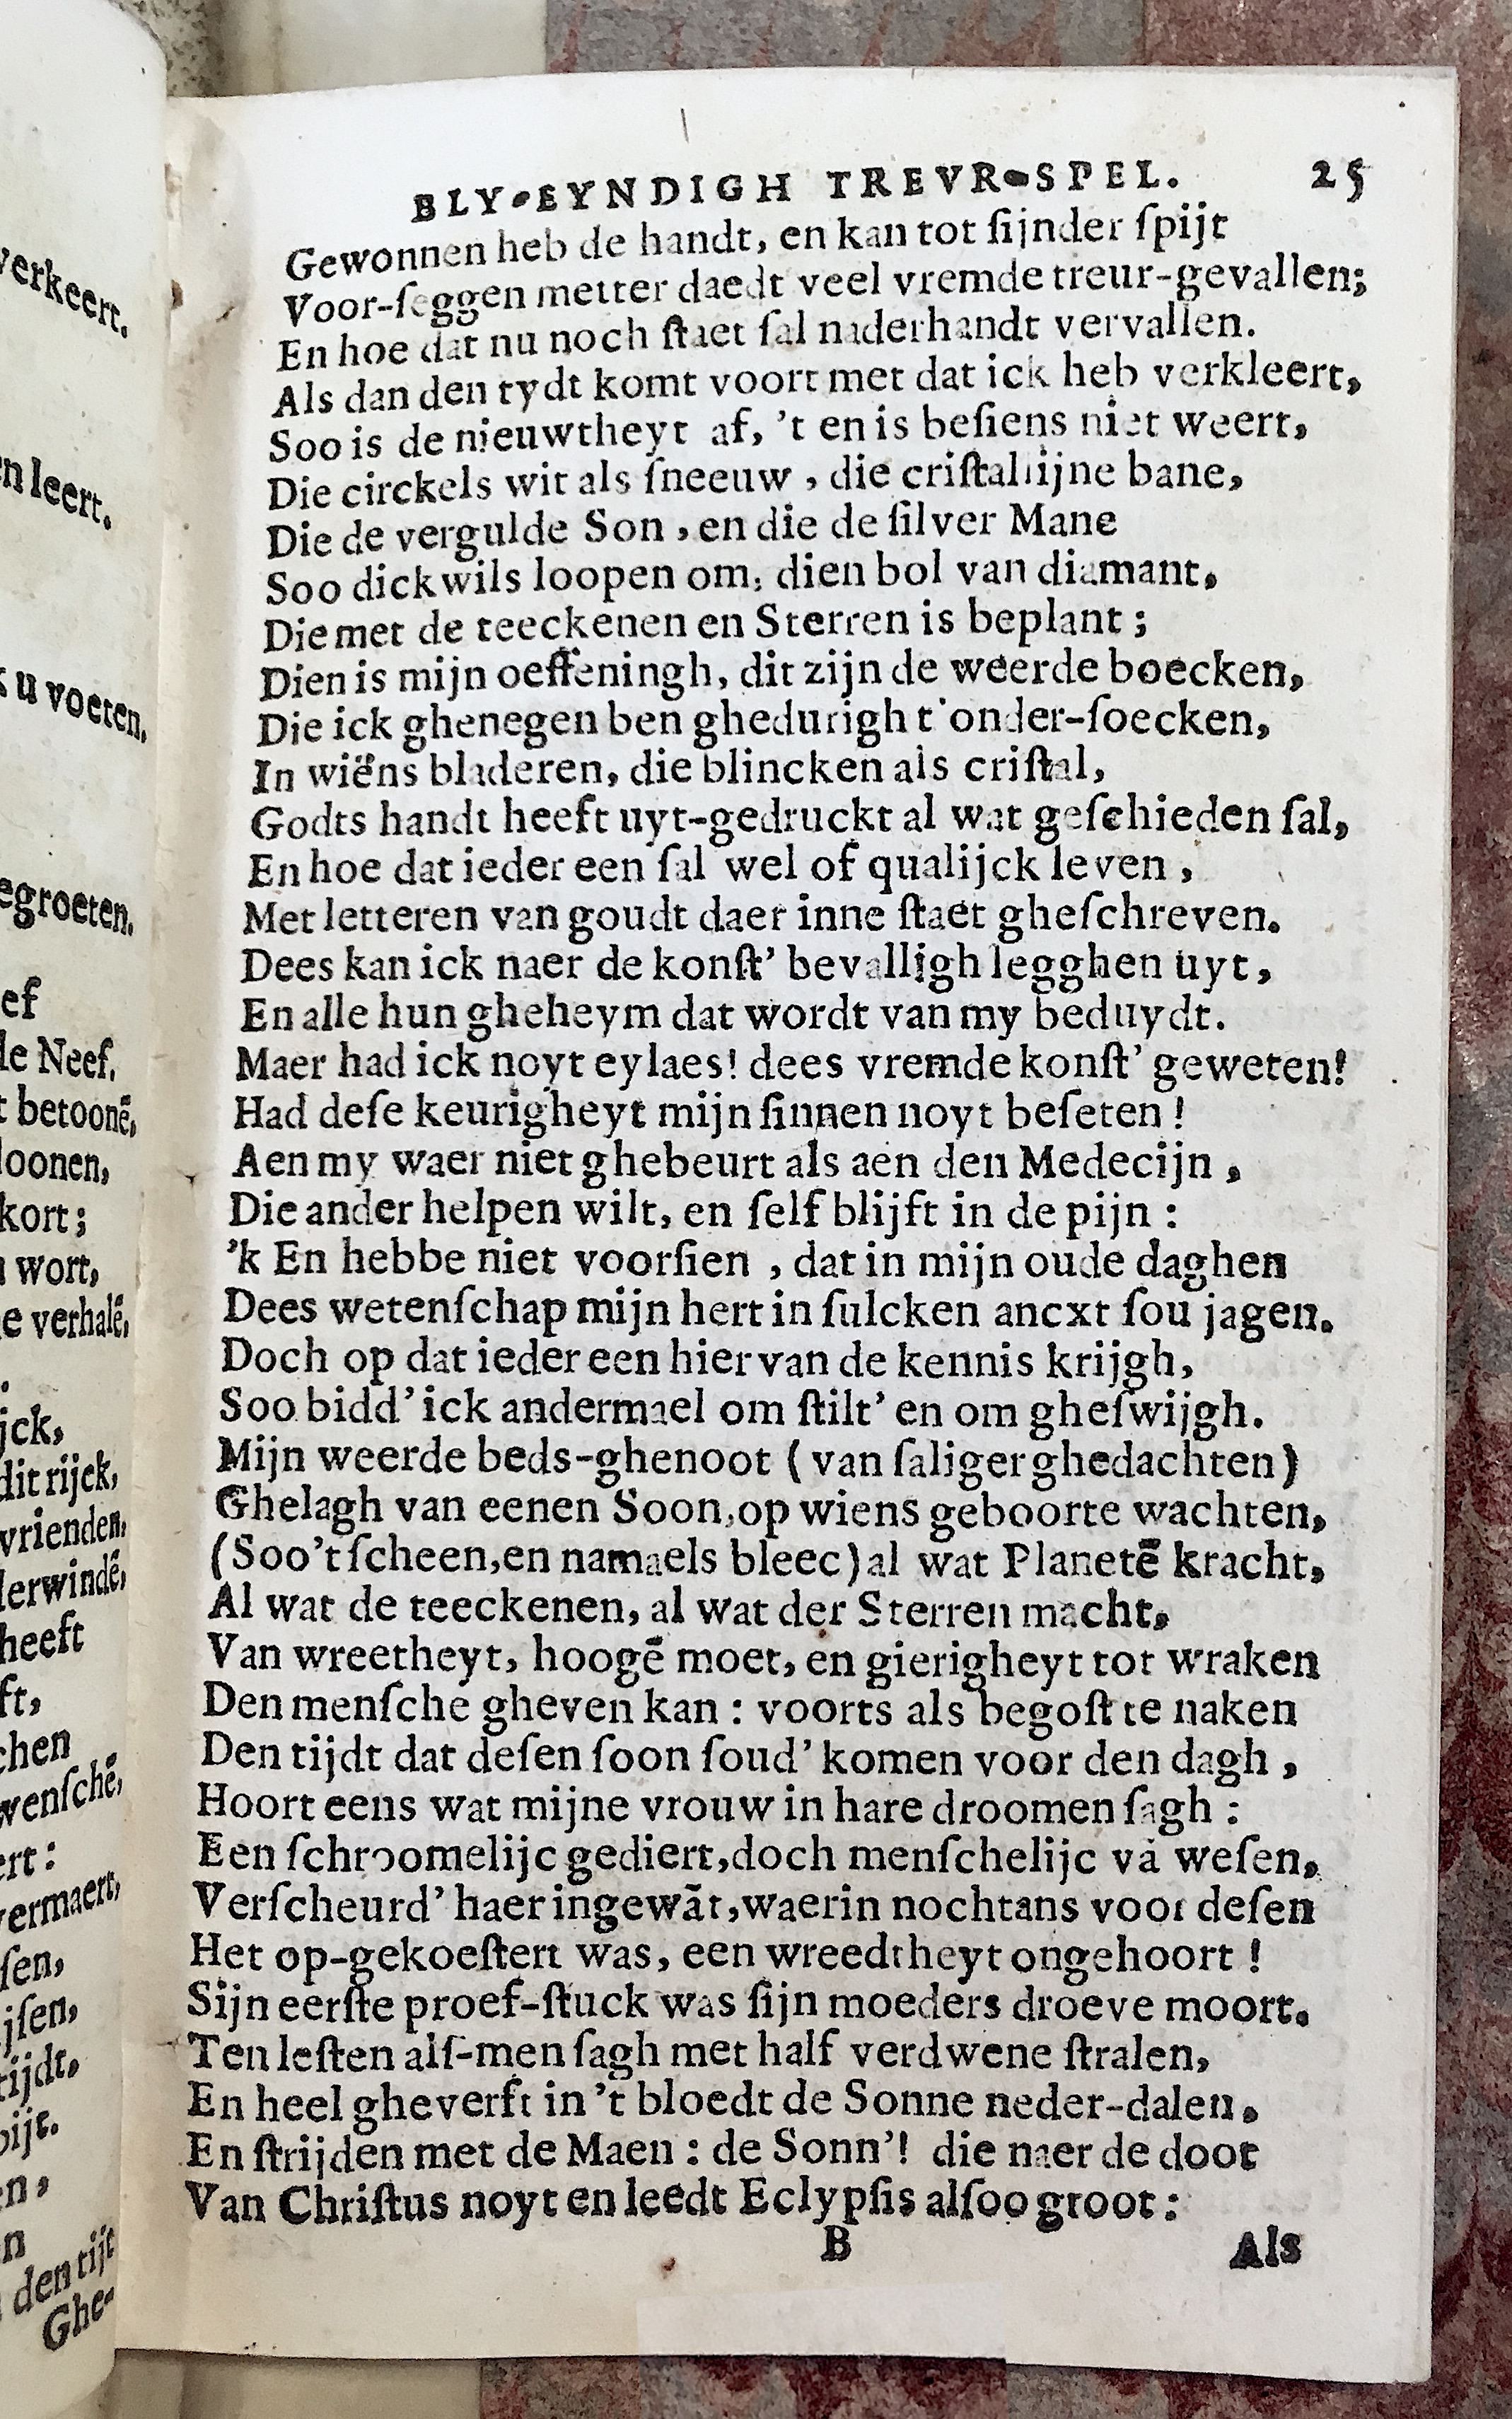 verkeert.
n leert.
k u voeten.
egroeten.
ef
de Neef.
t betoonē,
loonen,
kort;
wort,
e verhalē,
jck,
dit rijck,
vrienden,
derwindē,
heeft
ft,
chen
wenſchē,
ert:
vermaert,
ſen,
jſen,
tijdt,
pijt.
n,
n
den tijt
Ghe-
BLY-EYNDIGH TREVR-SPEL. 25
Gewonnen heb de handt, en kan tot ſijnder ſpijt
Voor-ſeggen metter daedt veel vremde treur-gevallen;
En hoe dat nu noch ſtaet ſal naderhandt vervallen.
Als dan den tydt komt voort met dat ick heb verkleert,
Soo is de nieuwtheyt af, 't en is beſiens niet weert,
Die circkels wit als ſneeuw, die criſtallijne bane,
Die de vergulde Son, en die de ſilver Mane
Soo dickwils loopen om, dien bol van diamant,
Die met de teeckenen en Sterren is beplant;
Dien is mijn oeffeningh, dit zijn de weerde boecken,
Die ick ghenegen ben ghedurigh t'onder-ſoecken,
In wiëns bladeren, die blincken als criſtal,
Godts handt heeft uyt-gedruckt al wat geſchieden ſal,
En hoe dat ieder een ſal wel of qualijck leven,
Met letteren van goudt daer inne ſtaet gheſchreven.
Dees kan ick naer de konſt' bevalligh legghen uyt,
En alle hun gheheym dat wordt van my beduydt.
Maer had ick noyt eylaes! dees vremde konſt' geweten!
Had deſe keurigheyt mijn ſinnen noyt beſeten!
Aen my waer niet ghebeurt als aen den Medecijn,
Die ander helpen wilt, en ſelf blijft in de pijn:
'k En hebbe niet voorſien, dat in mijn oude daghen
Dees wetenſchap mijn hert in ſulcken ancxt ſou jagen.
Doch op dat ieder een hier van de kennis krijgh,
Soo bidd' ick andermael om ſtilt' en om gheſwijgh.
Mijn weerde beds-ghenoot (van ſaliger ghedachten)
Ghelagh van eenen Soon, op wiens geboorte wachten,
(Soo't ſcheen, en namaels bleec) al wat Planetē kracht,
Al wat de teeckenen, al wat der Sterren macht,
Van wreetheyt, hoogē moet, en gierigheyt tot wraken
Den menſche gheven kan: voorts als begoſt te naken
Den tijdt dat deſen ſoon ſoud' komen voor den dagh,
Hoort eens wat mijne vrouw in hare droomen ſagh:
Een ſchroomelijc gediert, doch menſchelijc vā weſen,
Verſcheurd' haer ingewāt, waerin nochtans voor deſen
Het op-gekoeſtert was, een wreedtheyt ongehoort!
Sijn eerſte proef-ſtuck was ſijn moeders droeve moort.
Ten leſten alſ-men ſagh met half verdwene ſtralen,
En heel gheverft in 't bloedt de Sonne neder-dalen,
En ſtrijden met de Maen: de Sonn'! die naer de doot
Van Chriſtus noyt en leedt Eclypſis alſoo groot:
B Als